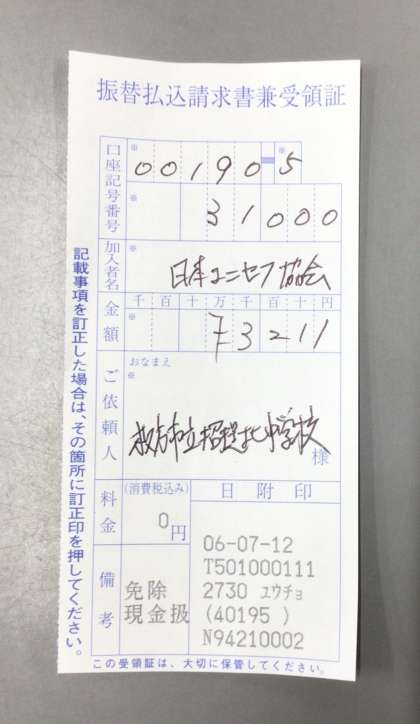 振替払込請求書兼受領証
口座記号番号
※
00190-5
※
※
31000
加入者名
※
日本ユニセフ協会
金額
千百十万千百十円
※
73211
ご依頼人
おなまえ
※
枚方市立招提北中学校
様
料金
(消費税込み)
0
円
備考
免除
現金扱
日附印
06-07-12
T501000111
2730 ユウチョ
(40195 )
N94210002
記載事項を訂正した場合は、その箇所に訂正印を押してください。
この受領証は、大切に保管してください。